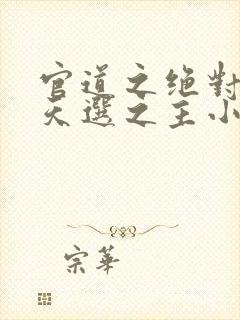 官道之绝對
天選之主小
宗華